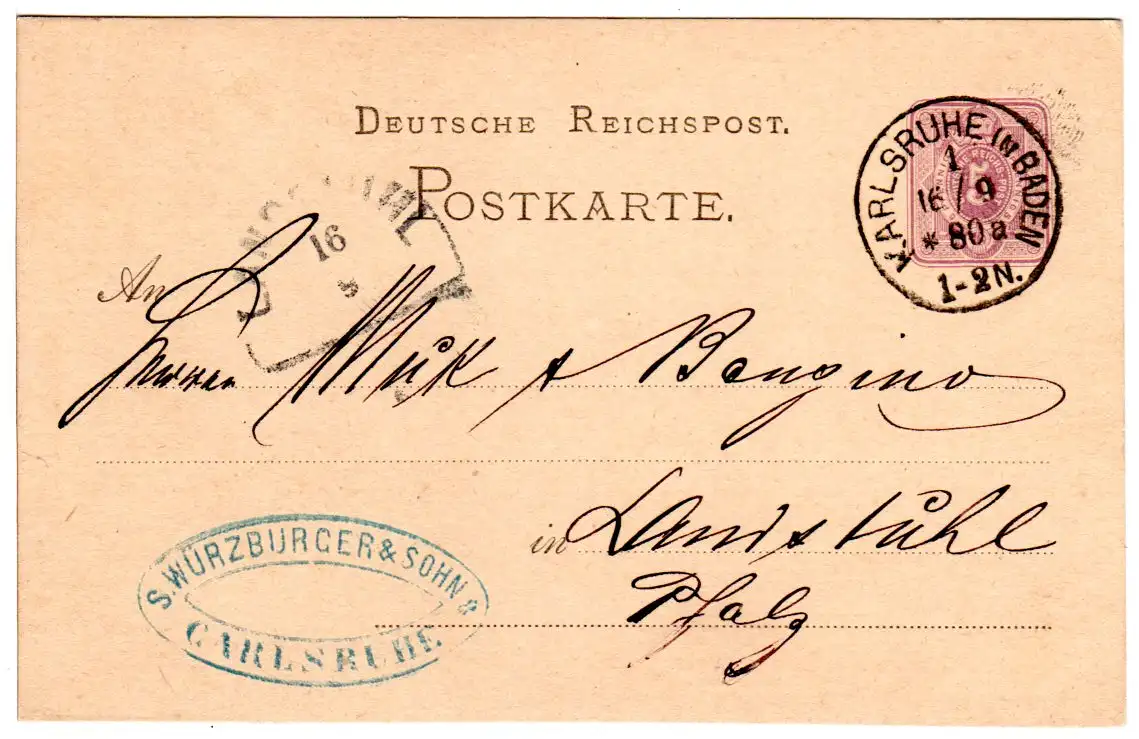 DEUTSCHE REICHSPOST.
POSTKARTE.
KARLSRUHE IN BADEN
1
16 / 9
* 80 a
1-2N.
16
9
An
Herren Muk & Bongino
in Landstuhl
Pfalz
S. WÜRZBURGER & SOHN
CARLSRUHE